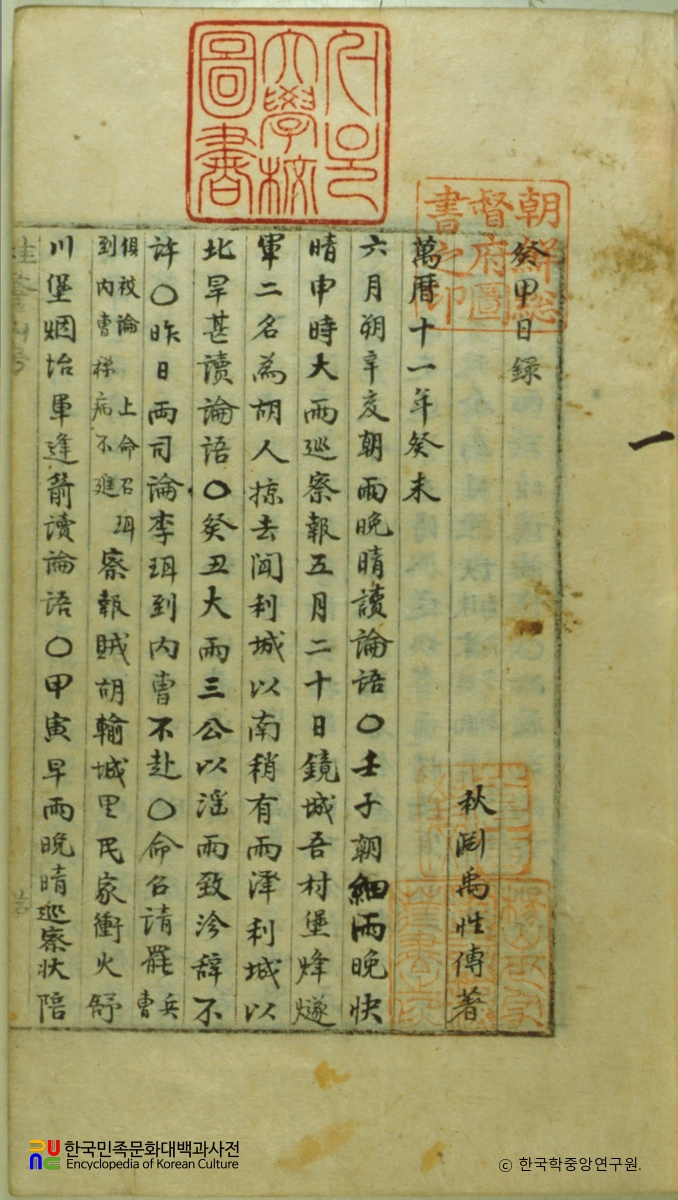 癸甲日録
秋淵禹性傳著
萬曆十一年癸未
六月朔辛亥朝雨晚晴讀論語○壬子朝細雨晚快
晴申時大雨巡察報五月二十日鏡城吾村堡烽燧
軍二名為胡人掠去聞利城以南稍有雨澤利城以
北旱甚讀論語○癸丑大雨三公以滛雨致沴辞不
許○昨日兩司論李珥到內曹不赴○命召請罷兵曹
俱被論 上命召珥
到內曹稱病不進
察報賊胡輸城里民家衝火舒
川堡烟坮軍逢箭讀論語○甲寅早雨晚晴巡察狀陪
一
朝鮮総督府圖書之印
大學校圖書
한국민족문화대백과사전
Encyclopedia of Korean Culture
ⓒ 한국학중앙연구원.